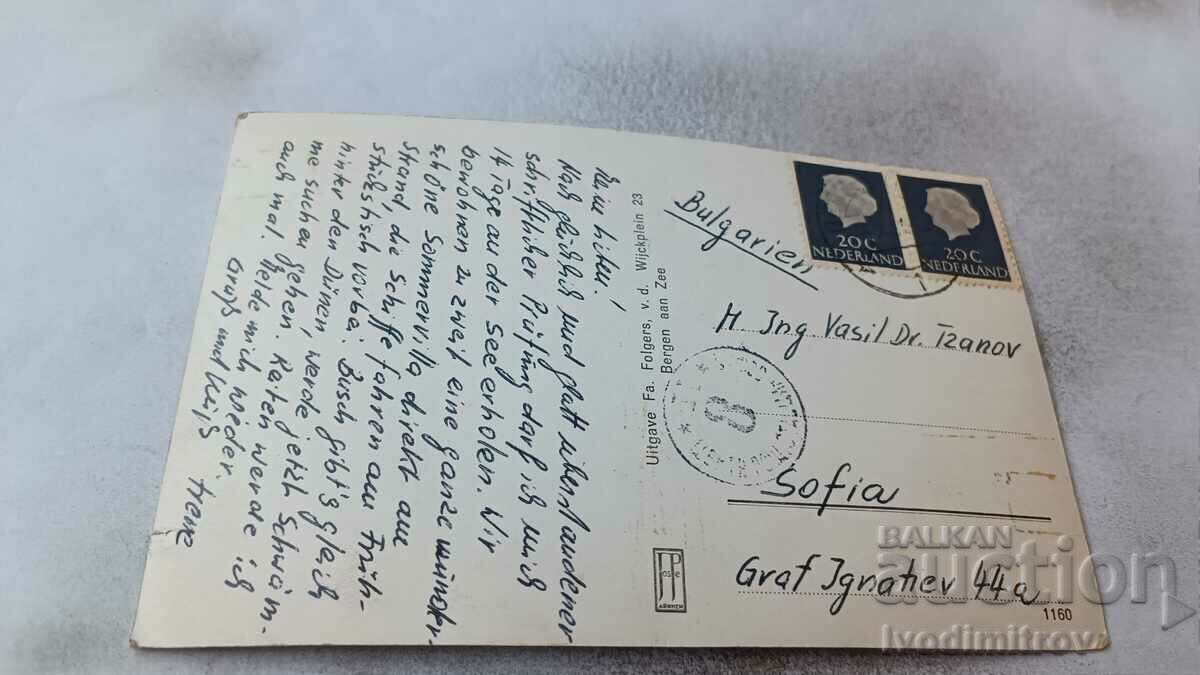 Nach glücklich und glatt überstandener
schriftlicher Prüfung darf ich mich
14 Tage an der See erholen. Wir
bewohnen zu zweit eine ganze wunder-
schöne Sommervilla direkt am
Strand, die Schiffe fahren am Früh-
stückstisch vorbei. Busch gibt's gleich
hinter den Dünen, werde jetzt schwim-
auch mal. Melde mich wieder.
Gruß und Kuß
Irene
Uitgave Fa. Folgers, v.d. Wijckplein 23
Bergen aan Zee
20 C
NEDERLAND
20 C
NEDERLAND
Bulgarien
H Ing Vasil Dr. Tzanov
8
Sofia
Graf Ignatiev 44a
JP
ARNHEM
1160
BALKAN
auction
Ivodimitrov